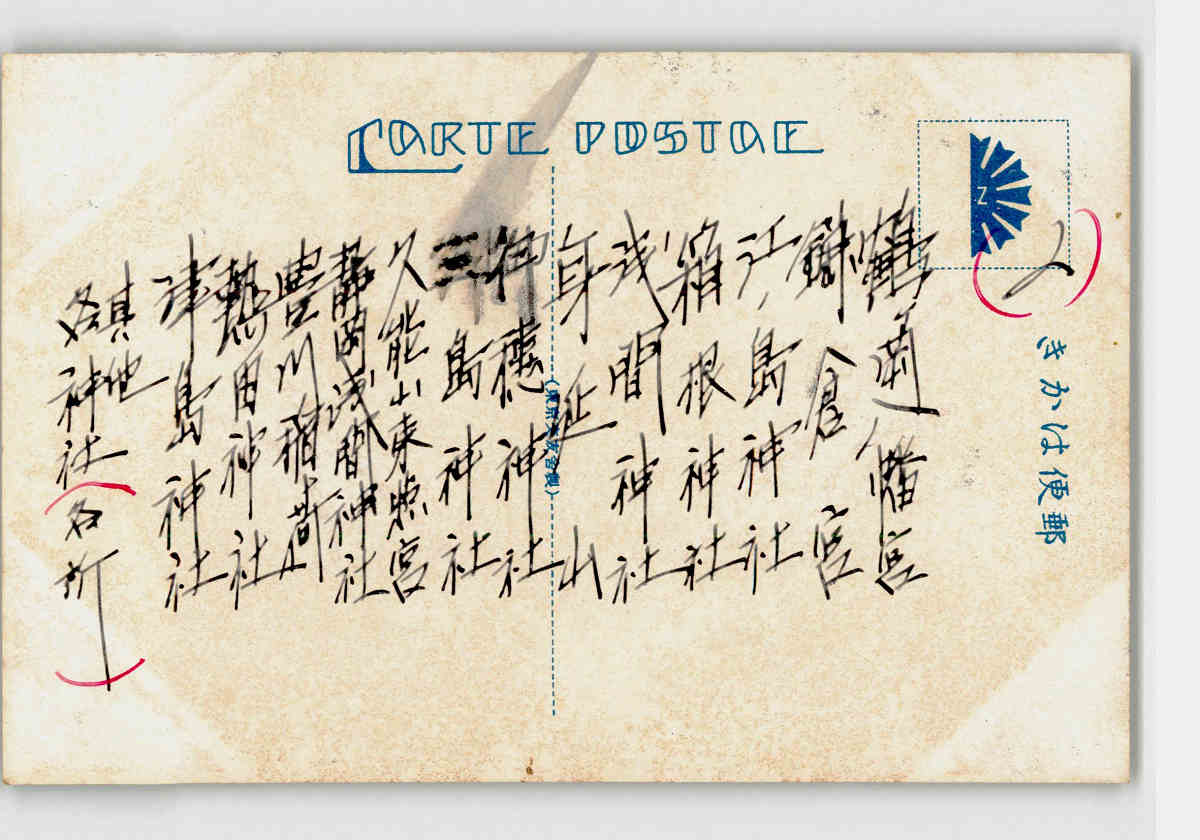 CARTE POSTALE
N
郵便はかき
鶴岡八幡宮
鎌倉宮
江島神社
箱根神社
浅間神社
身延山
穂神社
三島神社
久能山東照宮
静岡浅間神社
豊川稲荷
熱田神社
津島神社
其他
各神社(各所)